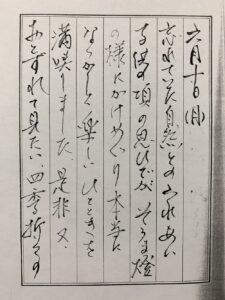 六月十日(月)
忘れていた自然とのふれあい
子供の頃の思ひでが、そうま燈
の様にかけめぐり本当に
なつかしく楽しいひとときを
満喫しました。是非又
おとずれて見たい、四季折々の